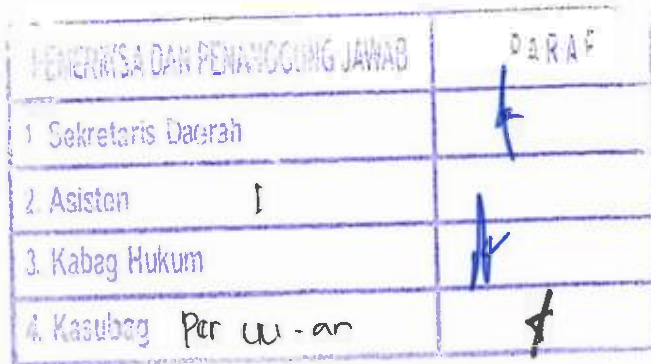 PEMERIKSA DAN PENANGGUNG JAWAB PARAF
1 Sekretaris Daerah
2. Asisten I
3. Kabag Hukum
4. Kasubag Per uu-an